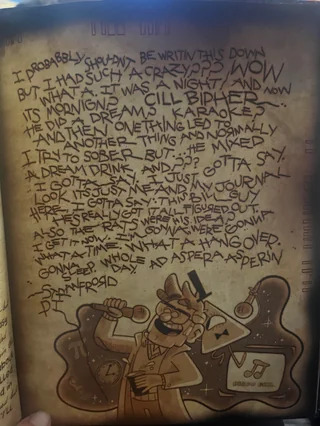 I PROBABBLY SHOULDNT BE WRITIN THIS DOWN
BUT I HAD SUCH A CRAZY??? WOW
WHAT A. IT WAS A NIGHT, AND NOW
ITS MORNIGN? CILL BIPHER~
HE DID A DREAM? KARAOKE?
AND THEN ONE THING LED TO
ANOTHER THING AND NORMALLY
I TRY TO SOBER BUT... HE MIXED
A DREAM DRINK, AND??? GOTTA SAY.
I GOTTA SAY. I JUST GOTTA
LOOK ITS JUST ME AND MY JOURNAL
HERE. I GOTTA SAY: THIS BILL GUY
HES REALLY GOT IT ALL FIGURED OUT.
ALSO THE RATS WERE HIS IDEA?
I GET IT NOW.
WHAT A TIME. WHAT A HANGOVER.
GONNA SLEEP. WHOLE DAY. AD ASPERA ASPERIN
~STANNFFORD